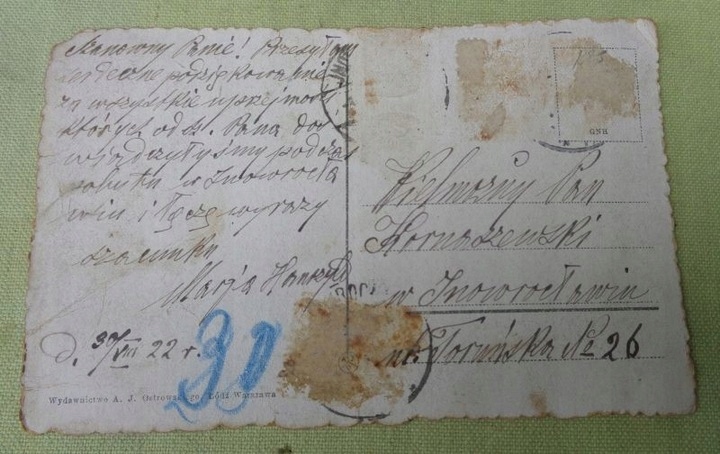 Szanowny Panie! Przesyłam
serdeczne podziękowanie
za wszystkie uprzejmości
których od Sz. Pana do-
świadczyłyśmy podczas
pobytu w Inowrocła
wiu i łączę wyrazy
szacunku
Marja
D. 30/VIII 22 r.
30
Wydawnictwo A. J. Ostrowskiego, Łódź Warszawa
GNB
Wielmożny Pan
Kornaszewski
w Inowrocławiu
ul. Toruńska No 26